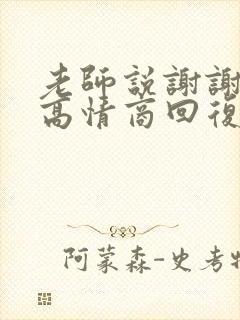 老師説謝謝
高情商回復
阿蒙森-史考特